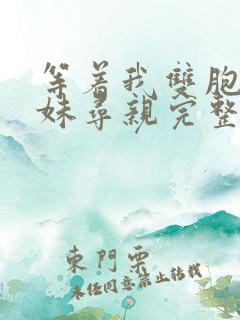 等着我雙胞
妹尋親完整
東門栗
未经同意禁止转载